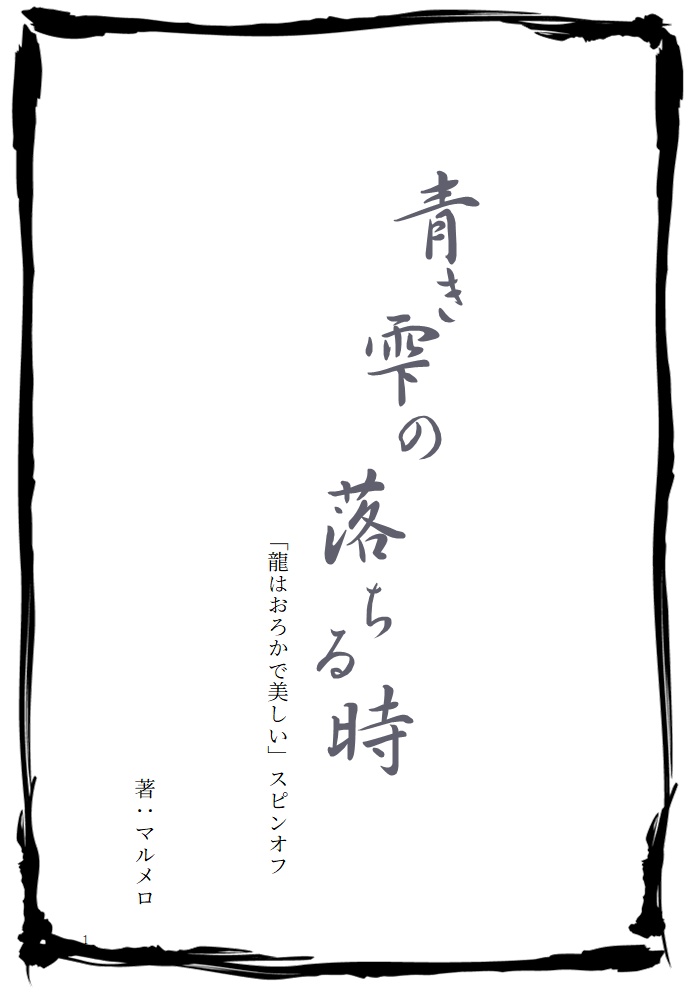 青き雫の落ちる時
「龍はおろかで美しい」スピンオフ
著：マルメロ
1